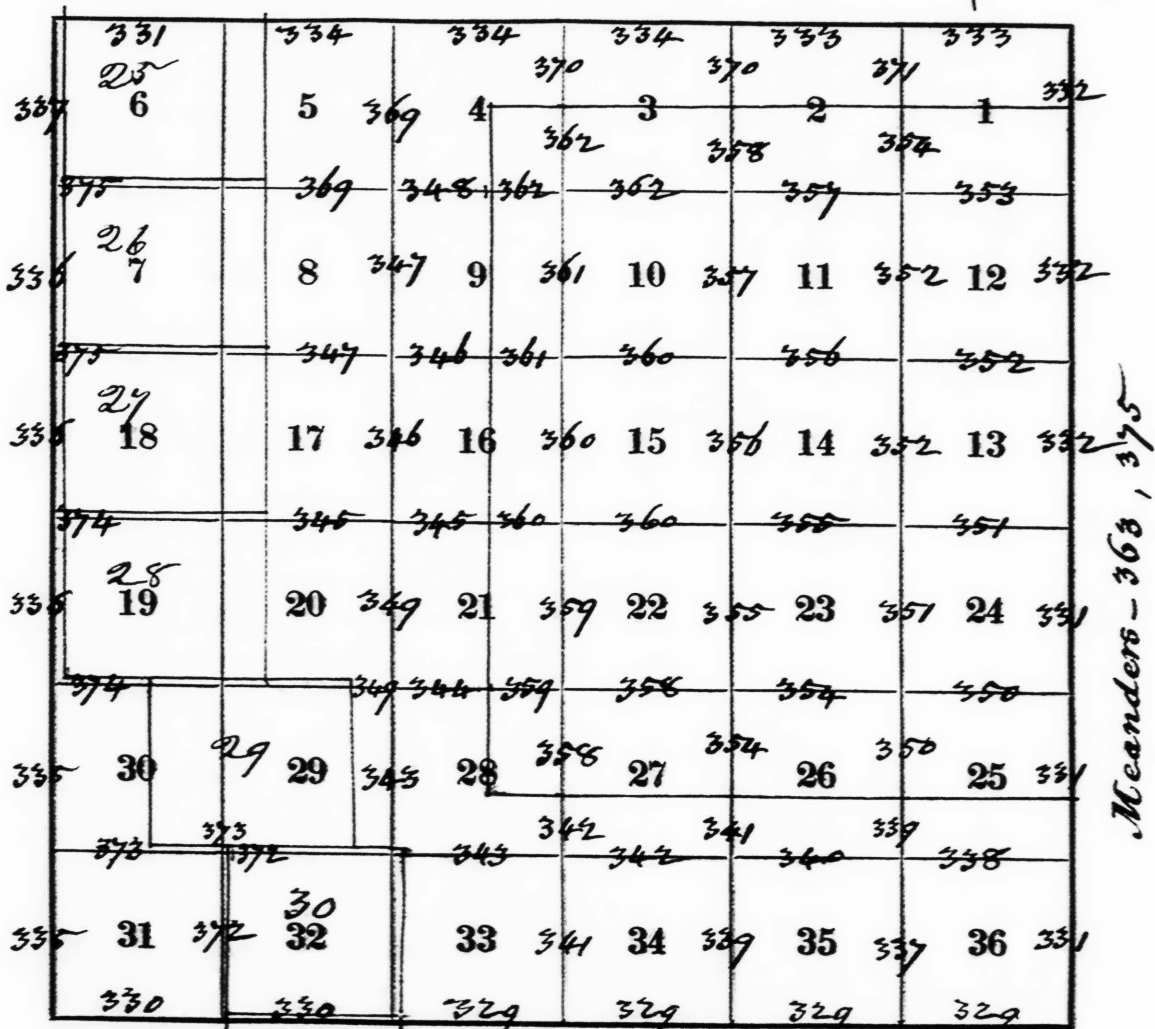 331 334 334 334 333 333
25 370 370 371
337 6 5 369 4 3 2 1 332
362 358 354
375 369 348 362 362 357 353
26
336 7 8 347 9 361 10 357 11 352 12 332
375 347 346 361 360 356 352
27
336 18 17 346 16 360 15 356 14 352 13 332
374 345 345 360 360 355 351
28
336 19 20 349 21 359 22 355 23 351 24 331
374 349 344 359 358 354 350
29 358 354 350
335 30 29 343 28 27 26 25 331
373 342 341 339
373 372 343 342 340 338
30
335 31 372 32 33 341 34 339 35 337 36 331
330 330 329 329 329 329
Meanders - 363, 375